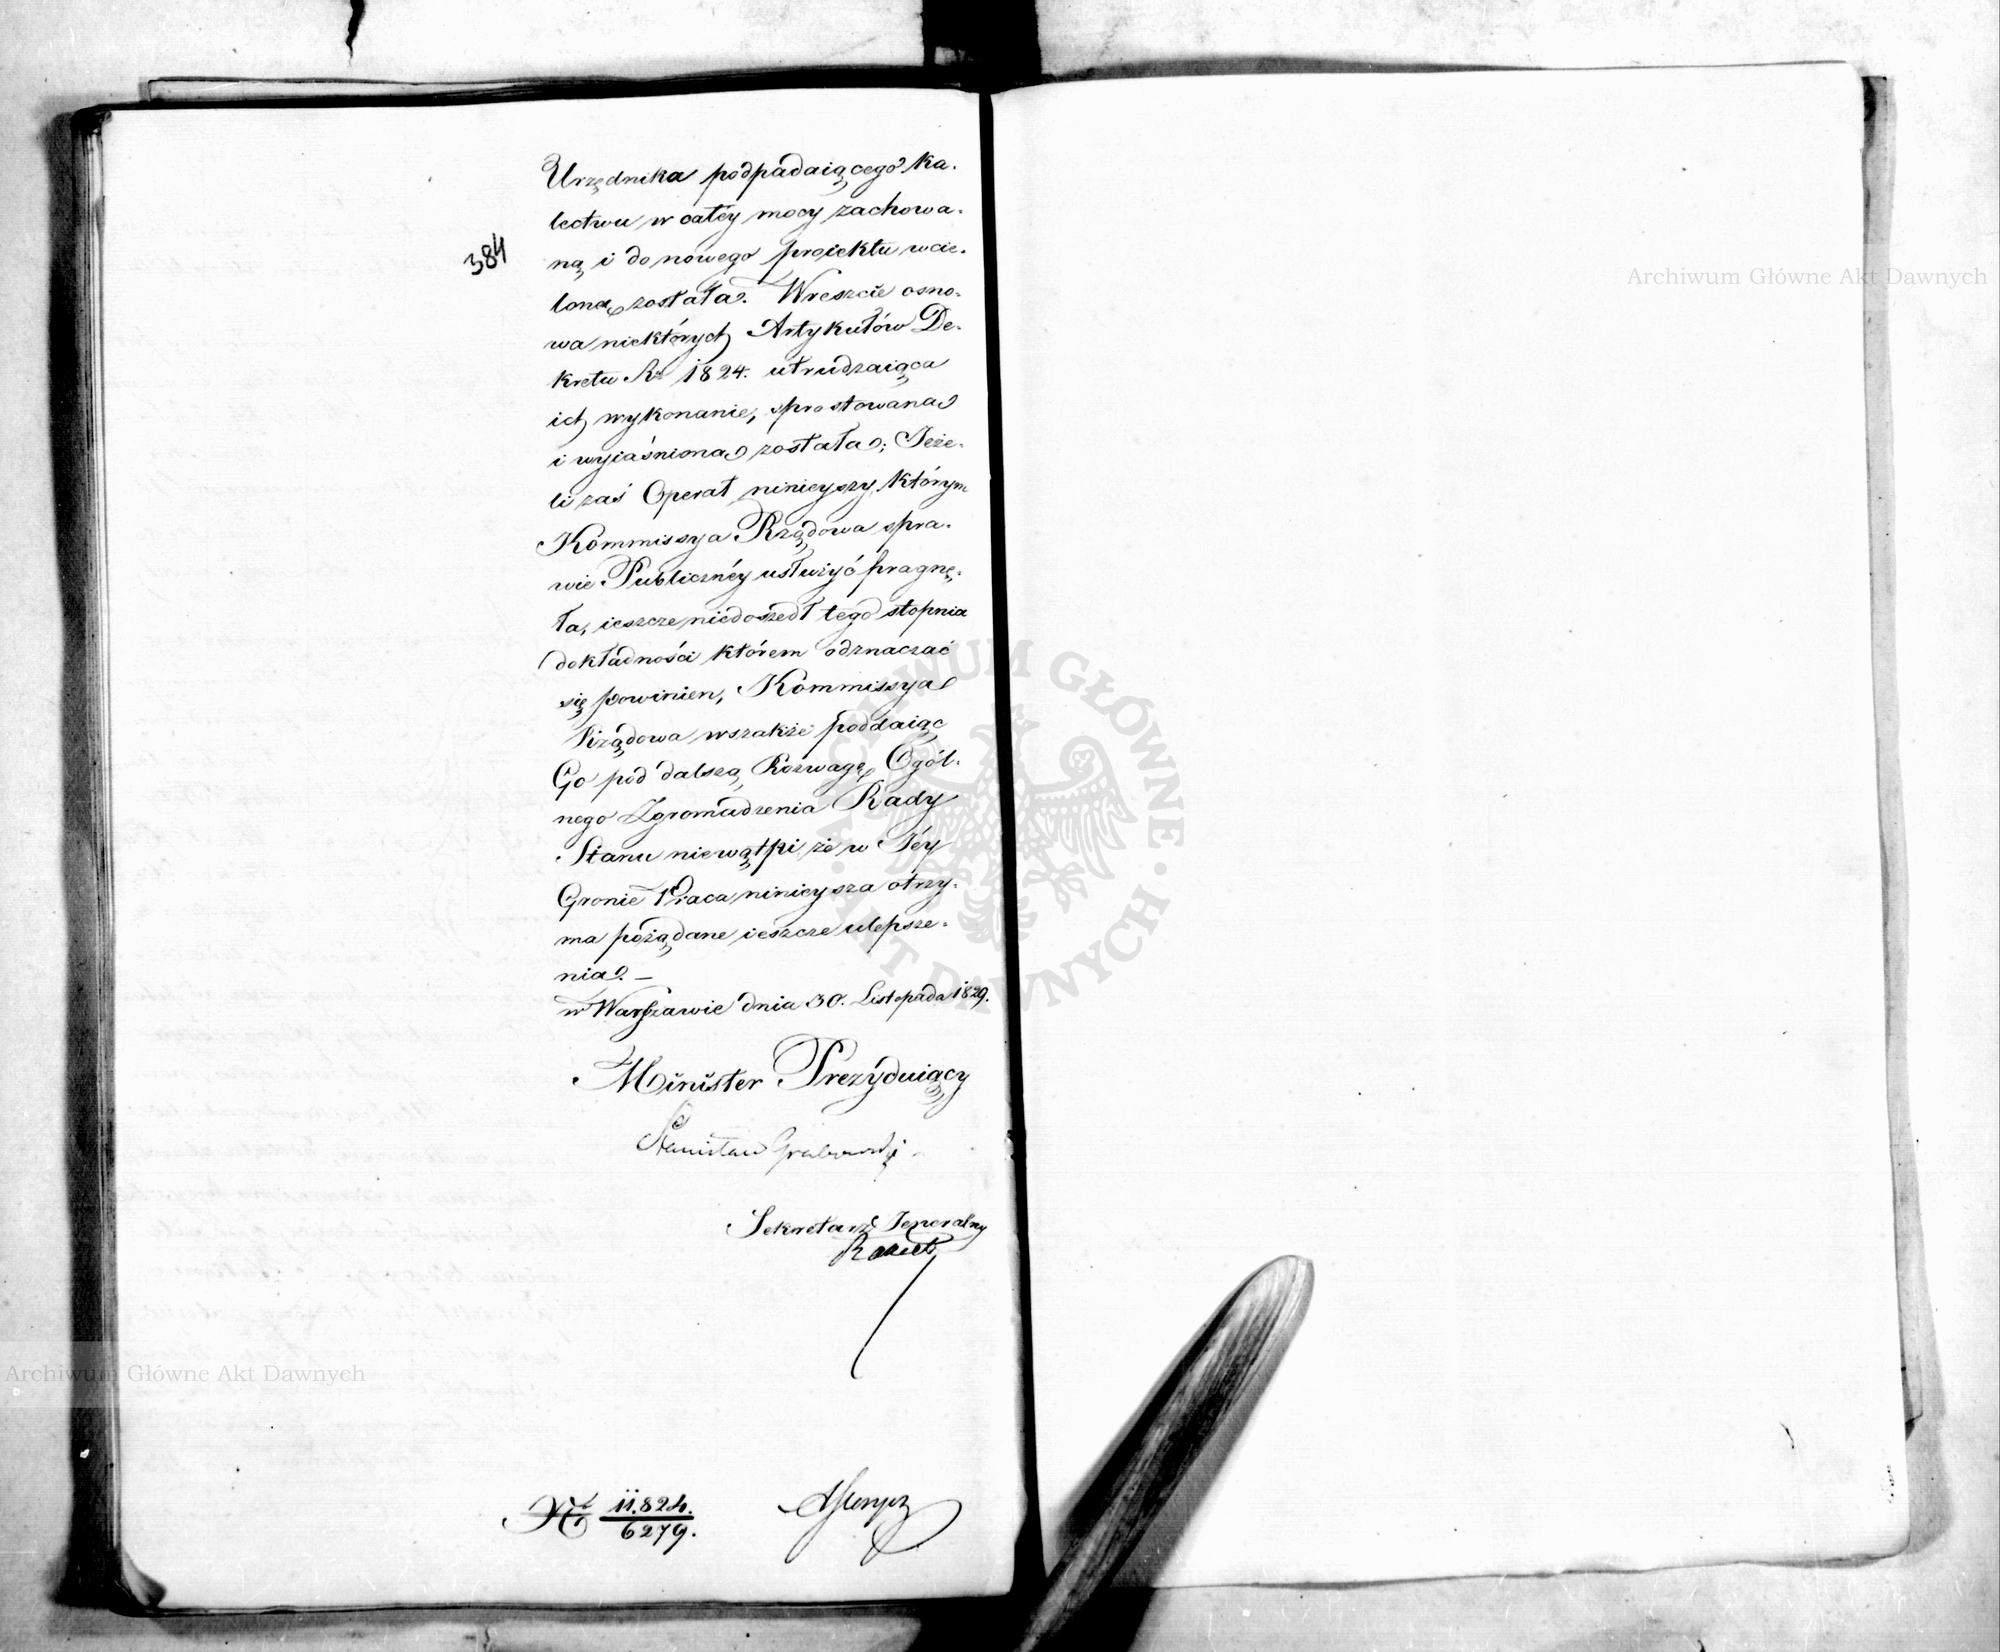 Urzędnika podpadaiącego ka-
lectwu w całéy mocy zachowa-
ną i do nowego proiektu wcie-
loną została. Wreszcie osno-
wa niektórych Artykułów De-
384
kretu Ru 1824. utrudzaiąca
ich wykonanie, sprostowana
i wyiaśniona została; Jeże-
li zaś Operat ninieyszy, którym
Kommissya Rządowa spra-
wie Publicznéy usłużyć pragnę-
ła, ieszcze niedoszedł tego stopnia
dokładności którem odznaczać
się powinien, Kommissya
Rządowa wszakże poddaiąc
Go pod dalszą Rozwagę Ogól-
nego Zgromadzenia Rady
Stanu niewątpi, że w Jéy
Gronie Praca ninieysza otrzy-
ma pożądane ieszcze ulepsze-
nia. –
w Warszawie dnia 30. Listopada 1829.
Minister Prezyduiący
Stanisław Grabowski
Sekretarz Jeneralny
No 11.824.
6279.
Archiwum Główne Akt Dawnych
Archiwum Główne Akt Dawnych
ARCHIWUM GŁÓWNE
AKT DAWNYCH